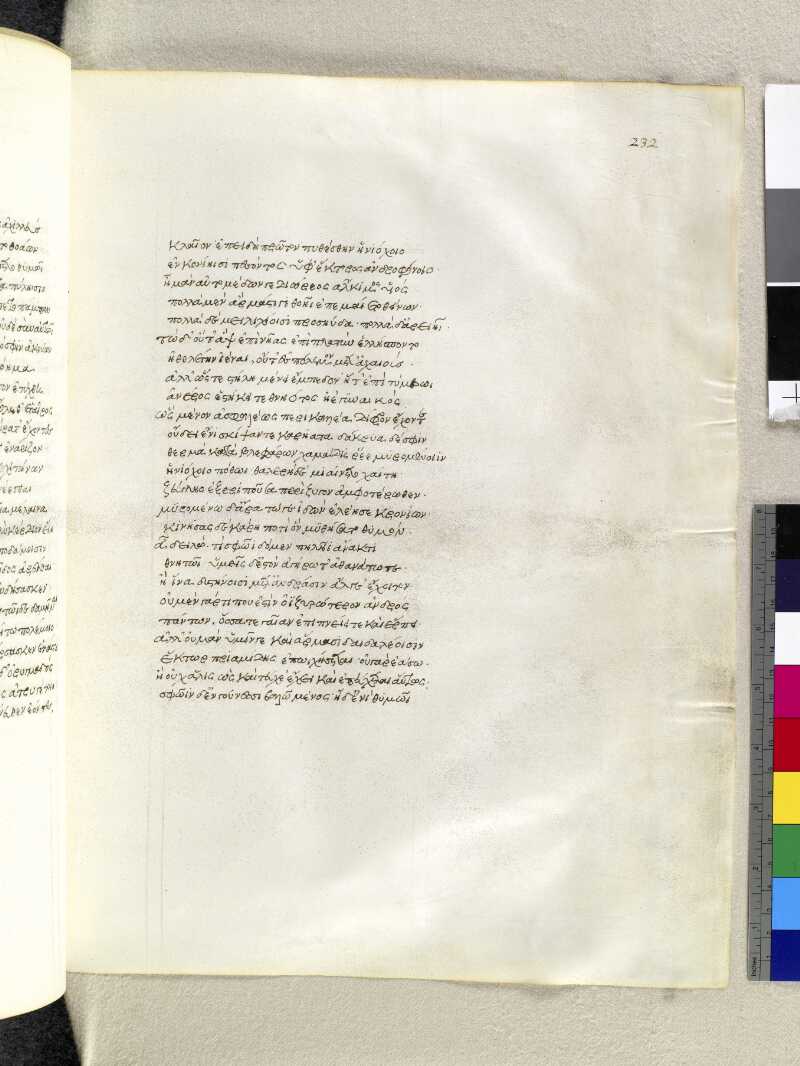 232
κλαῖον ἐπειδὴ πρῶτον πυθέσθην ἡνιόχοιο
ἐν κονίηισι πεσόντος ὑφ' ἕκτορος ἀνδροφόνοιο·
ἦ μὰν αὐτομέδων γε διώρεος ἄλκιμος υἱός
πολλὰ μὲν ἂρ μάστιγι θοῆι ἐπεμαίετο θείνων·
πολλὰ δὲ μειλιχίοισι προσηύδα· πολλὰ δ' ἀρειῆι·
τὼ δ' οὔτ' ἂψ ἐπὶ νῆας ἐπὶ πλατὺν ἑλλήσποντον
ἠθελέτην ἰέναι, οὔτ' ἐς πόλεμον μετ' ἀχαιούς·
ἀλλ' ὥς τε στήλη μένει ἔμπεδον ἥ τ' ἐπὶ τύμβωι
ἀνέρος ἑστήκει τεθνηότος ἠὲ γυναικός·
ὣς μένον ἀσφαλέως περικαλλέα δίφρον ἔχοντε
οὔδει ἐνισκίμψαντε καρήατα· δάκρυα δέ σφιν
θερμὰ κατὰ βλεφάρων χαμάδις ῥέε μυρομένοισιν
ἡνιόχοιο πόθωι· θαλερὴ δὲ μιαίνετο χαίτη
ζεύγλης ἐξεριποῦσα περὶ ζυγὸν ἀμφοτέρωθεν·
μυρομένω δ' ἄρα τώ γε ἰδὼν ἐλέησε κρονίων·
κινήσας δὲ κάρη προτὶ ὃν μυθήσατο θυμόν·
ἆ δειλώ· τί σφῶϊ δόμεν πηλῆϊ ἄνακτι
θνητῶι· ὑμεῖς δ' ἐστὸν ἀγήρω τ' ἀθανάτω τε·
ἦ ἵνα δυστήνοισι μετ' ἀνδράσιν ἄλγε' ἔχητον
οὐ μὲν γάρ τί που ἐστὶν ὀϊζυρώτερον ἀνδρός
πάντων, ὅσσα τε γαῖαν ἔπι πνείει τε καὶ ἕρπει·
ἀλλ' οὐ μὰν ὑμῖν γε καὶ ἅρμασι δαιδαλέοισιν
ἕκτωρ πριαμίδης ἐποχήσεται· οὐ γὰρ ἐάσω·
ἦ οὐχ ἅλις ὡς καὶ τεύχε' ἔχει καὶ ἐπεύχεται αὔτως·
σφῶϊν δ' ἐν γούνεσσι βαλῶ μένος· ἠδ' ἐνὶ θυμῶι